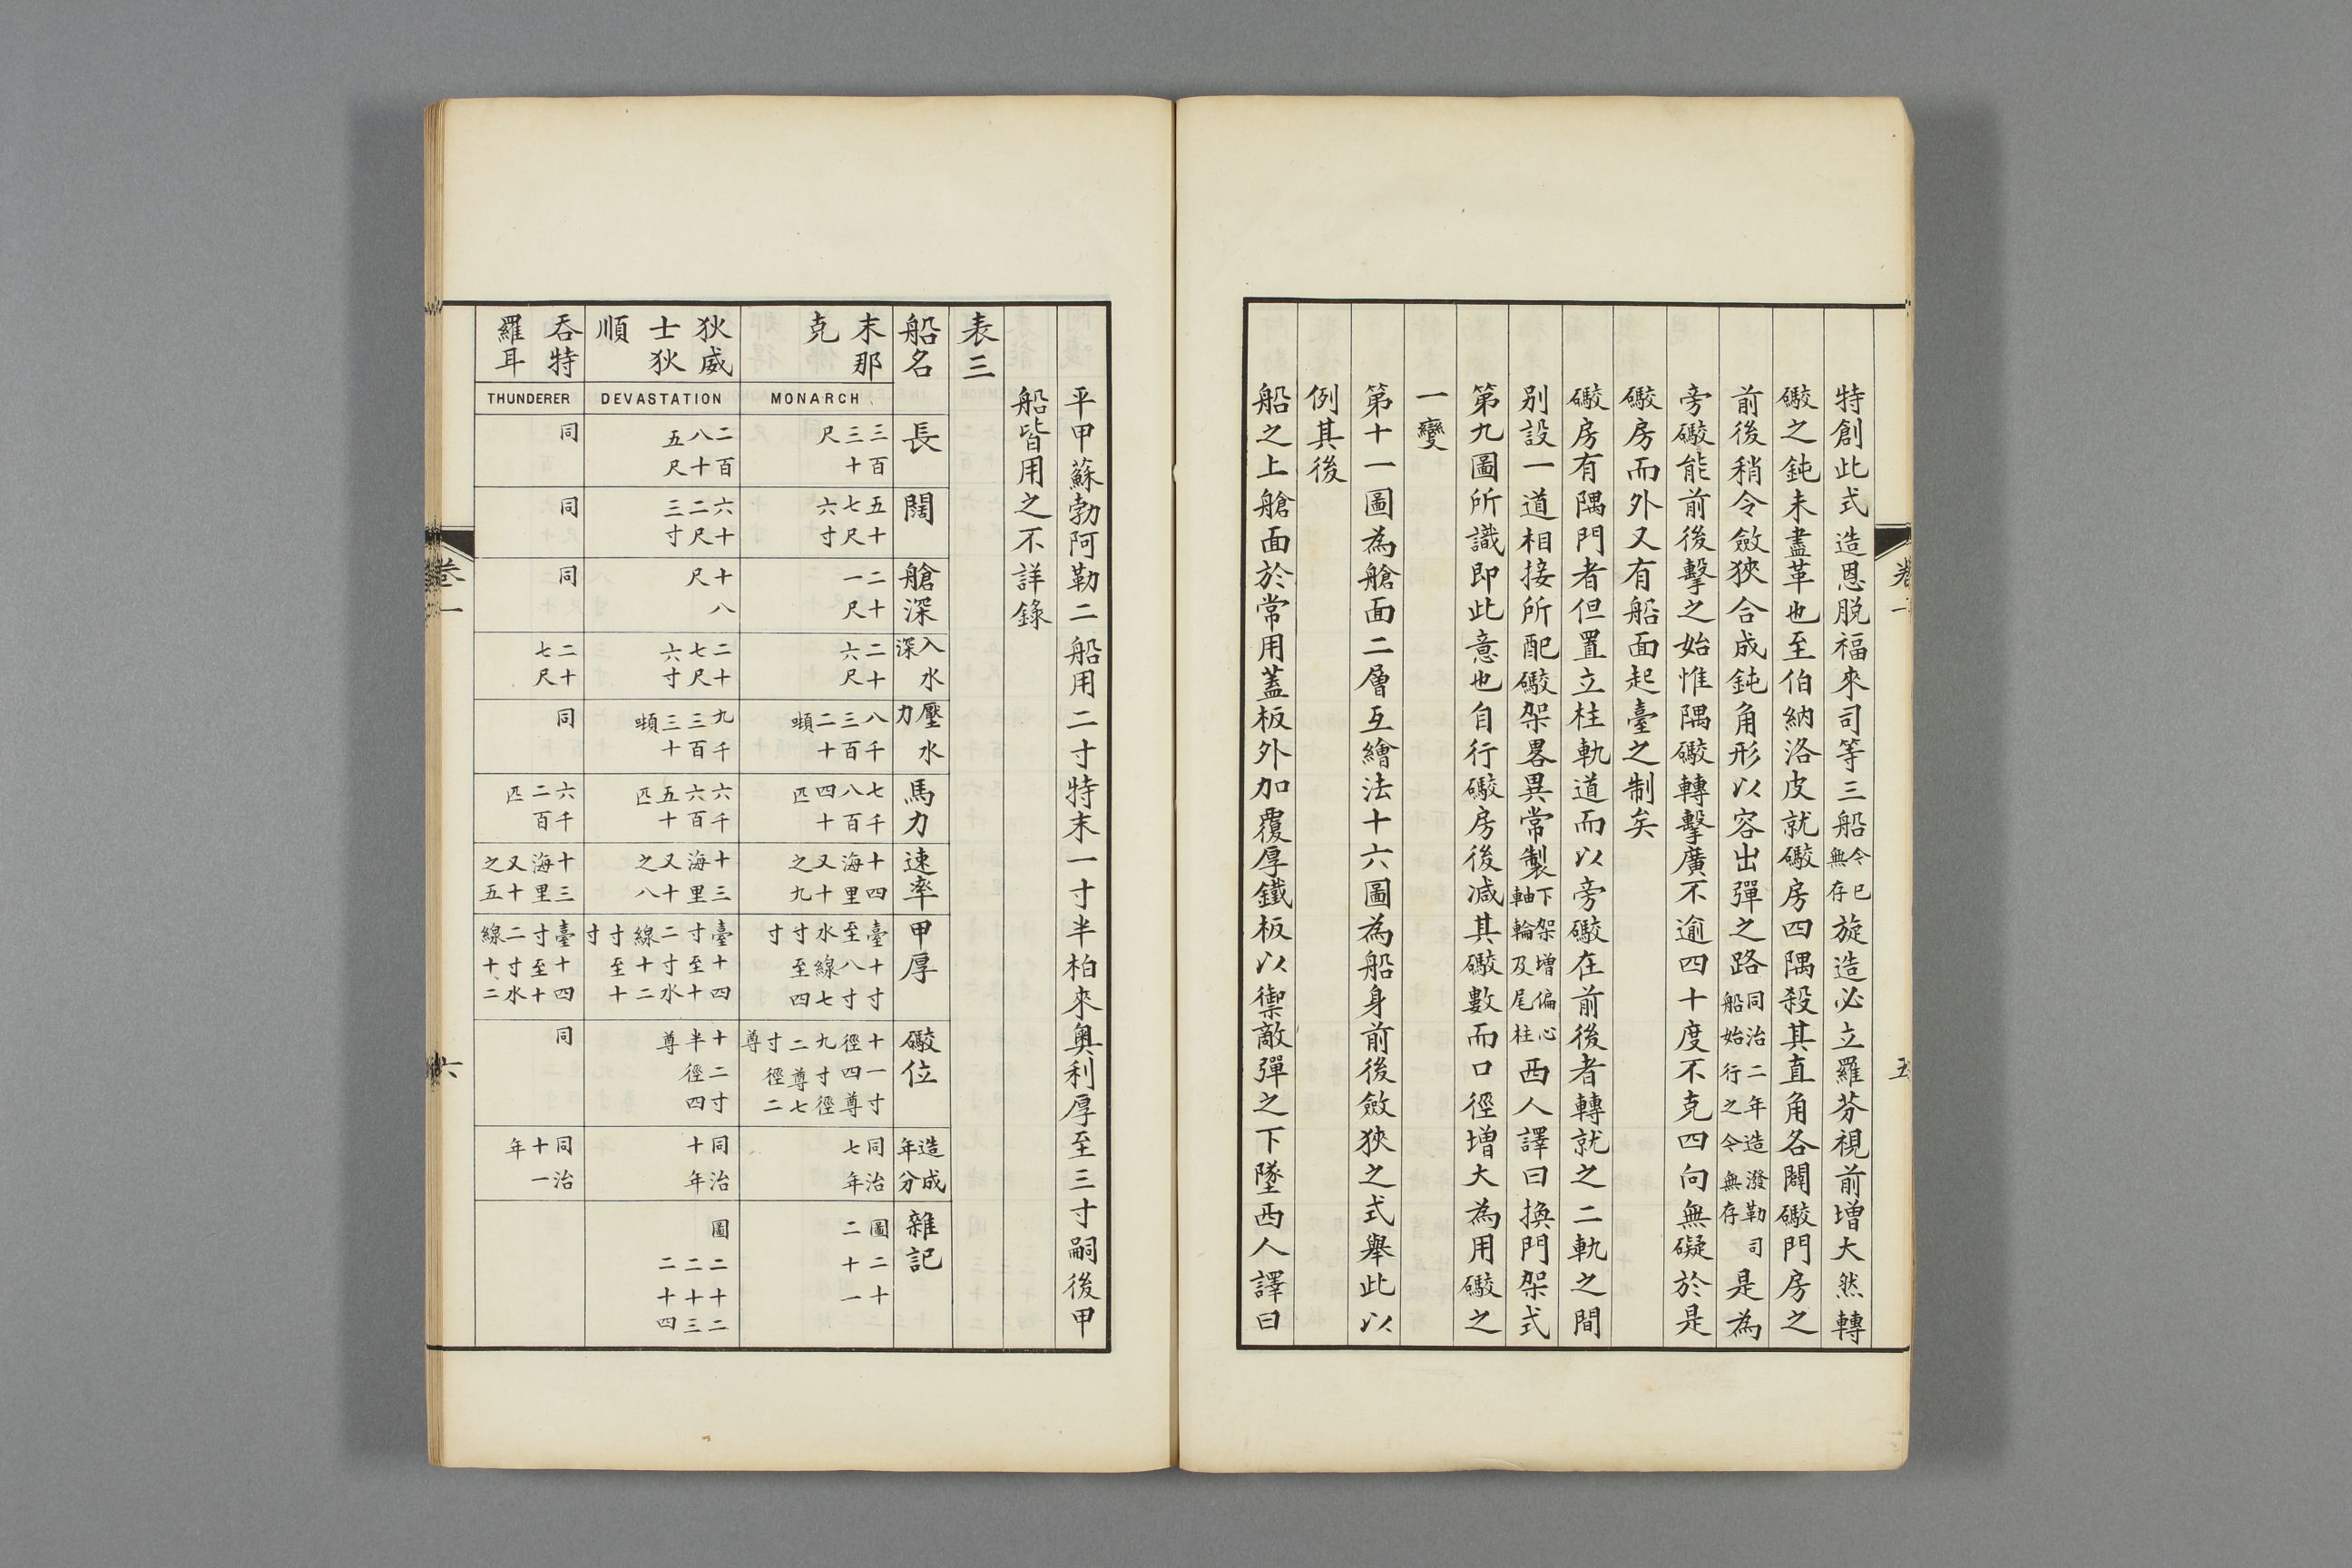 特創此式造恩脱福來司等三船令已無存旋造必立羅芬視前增大然轉
礮之鈍未盡革也至伯納洛皮就礮房四隅殺其直角各闢礮門房之
前後稍令斂狹合成鈍角形以容出彈之路同治二年造潑勒司船始行之令無存是為
旁礮能前後擊之始惟隅礮轉擊廣不逾四十度不克四向無礙於是
礮房而外又有船面起臺之制矣
礮房有隅門者但置立柱軌道而以旁礮在前後者轉就之二軌之間
别設一道相接所配礮架畧異常製下架增偏心軸輪及尾柱西人譯曰換門架式
第九圖所識即此意也自行礮房後減其礮數而口徑增大為用礮之
一變
第十一圖為艙面二層互繪法十六圖為船身前後斂狹之式舉此以
例其後
船之上艙面於常用蓋板外加覆厚鐵板以禦敵彈之下墜西人譯曰
卷一
五
平甲蘇勃阿勒二船用二寸特末一寸半柏來奥利厚至三寸嗣後甲
船皆用之不詳錄
表三
船名
長
闊
艙深
入水深
壓水力
馬力
速率
甲厚
礮位
造成年分
雜記
末那克
MONARCH
三百三十尺
五十七尺六寸
二十一尺
二十六尺
八千三百二十噸
七千八百四十匹
十四海里又十之九
臺十寸至八寸水線七寸至四寸
十一寸徑四尊九寸徑二尊七寸徑二尊
同治七年
圖二十二十一
狄威士狄順
DEVASTATION
二百八十五尺
六十二尺三寸
十八尺
二十七尺六寸
九千三百三十噸
六千六百五十匹
十三海里又十之八
臺十四寸至十二寸水線十二寸至十寸
十二寸半徑四尊
同治十年
圖二十二二十三二十四
吞特羅耳
THUNDERER
同
同
同
二十七尺
同
六千二百匹
十三海里又十之五
臺十四寸至十二寸水線十二
同
同治十一年
卷一
六